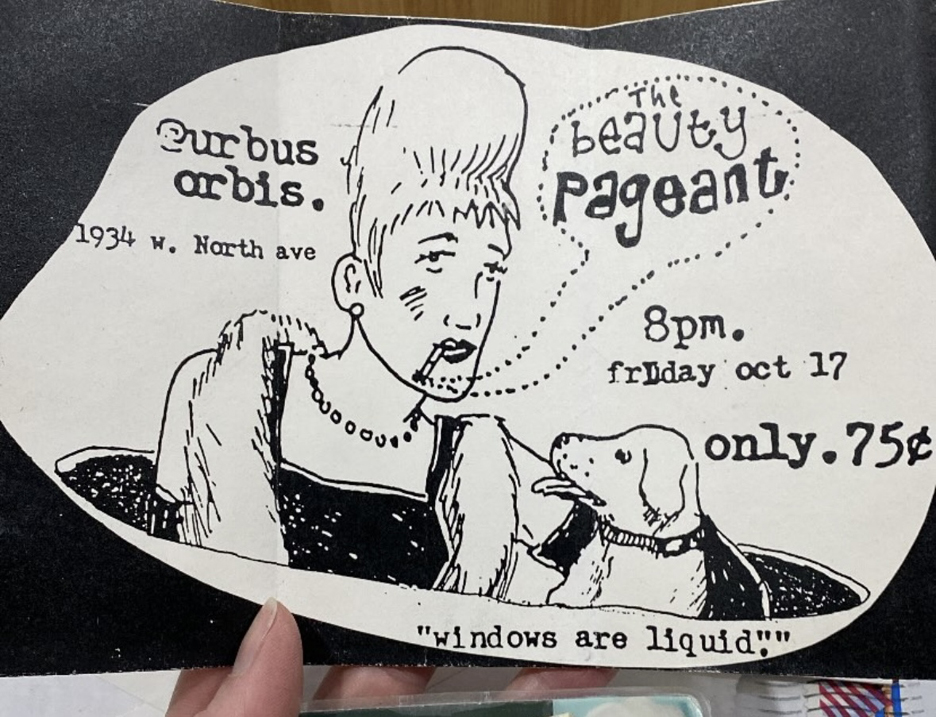 @urbus
orbis.
1934 w. North ave
The
beauty
pageant
8pm.
friday oct 17
only.75¢
"windows are liquid".""